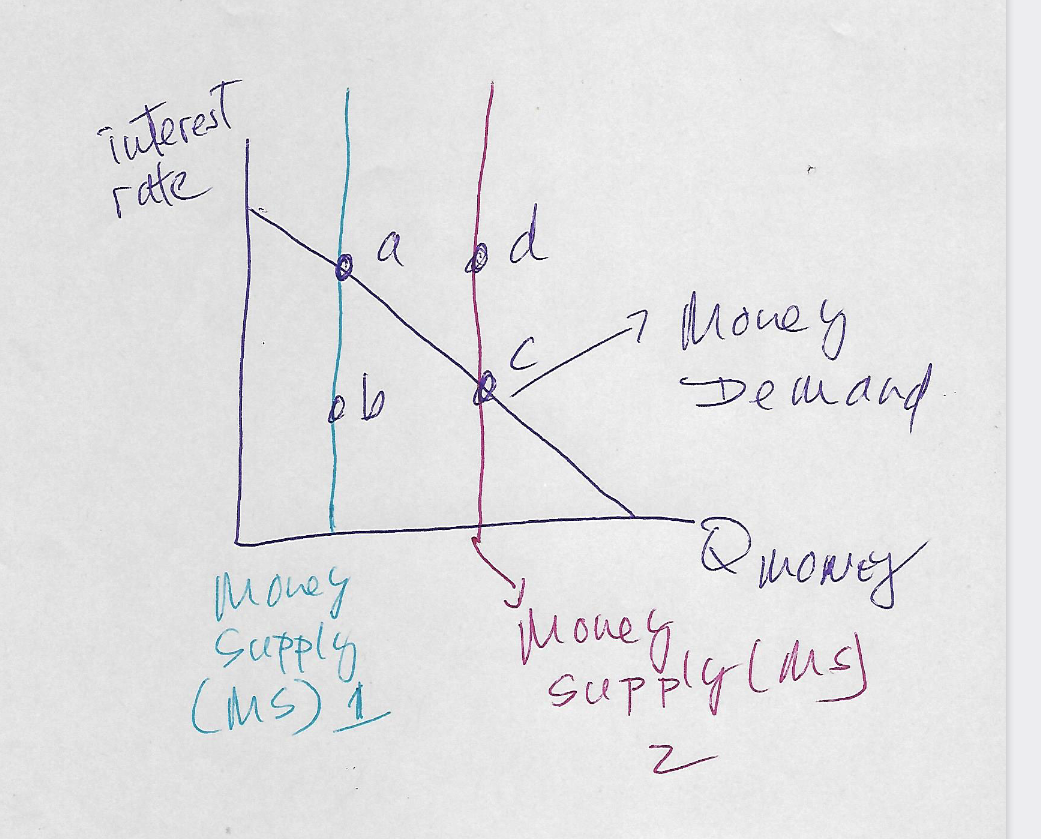 interest
rate
a
d
c
b
Money
Demand
Q money
Money
Supply
(MS) 1
Money
Supply (MS)
2